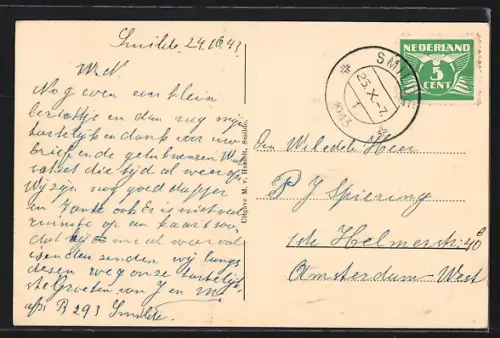 Smilde. 24.10.43
W.N.
Nog even een klein
berichtje en dan nog mijn
hartelijk en dank voor uw
brief en de gelukwensen
die tijd al weer op
Wij zijn nog goed dapper
en Jonke ook Er is niet veel
ruimte op een kaart
dat
zenden wij langs
dezen weg onze hartelijk
ste groeten van J en M
afz. B 293 Smilde.
Uitgave M. v. Smilde.
SMILDE
25.X.-7.
1
1943
NEDERLAND
5
CENT
Den Weledele Heer
P J Spiering
1ste Helmersstr 40
Amsterdam-West